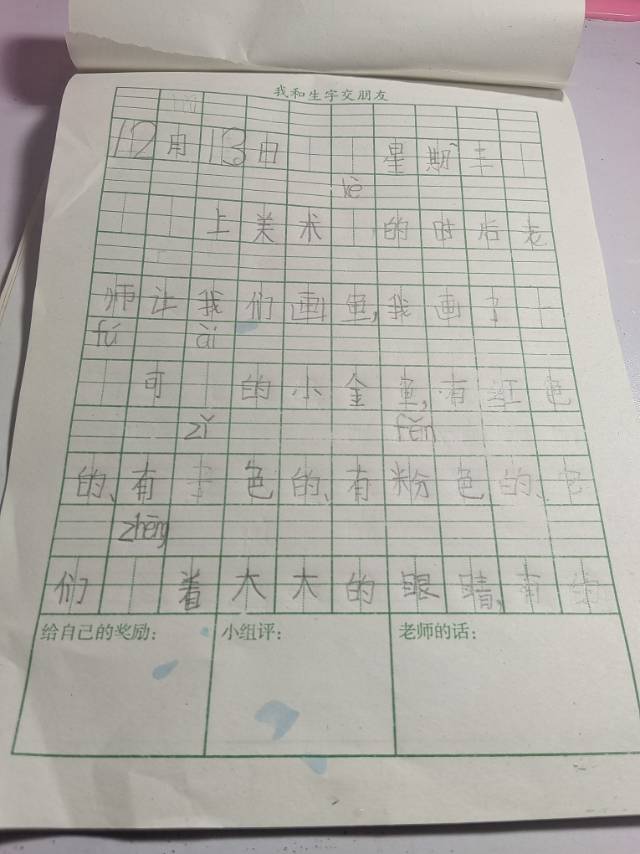 我和生字交朋友
12月13日 星期三
kè
上美术 的时后老
师让我们画鱼,我画了
fú ài
可 的小金鱼,有红色
zǐ fěn
的、有 色的、有粉色的、它
zhēng
们 着大大的眼睛,有的
给自己的奖励: 小组评: 老师的话: